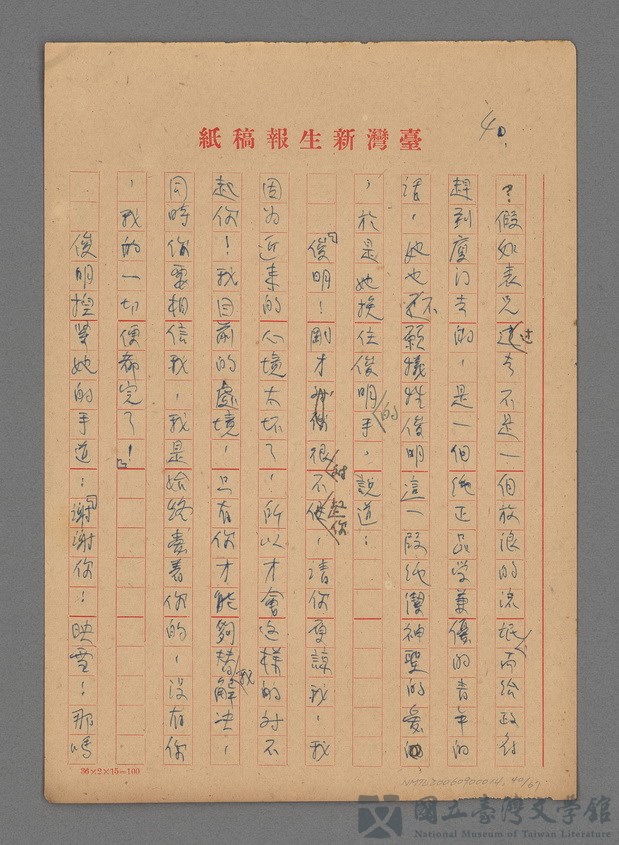 40.
臺灣新生報稿紙
？假如表兄過去不是一個放浪的流氓，而給政府
趕到廈門去的，是一個純正品学兼優的青年的
話，她也不願犧牲俊明這一段純潔神聖的爱，
，於是她挽住俊明的手，說道：
「俊明！剛才很对不起你，请你原諒我，我
因为近来的心境太坏了，所以才會这樣的对不
起你！我目前的處境，只有你才能夠替我解决，
同時你要相信我，我是始終爱着你的，没有你
，我的一切便都完了！」
俊明握緊她的手道：「谢谢你！映雪！那嗎
36×2×15=100
NMTL20060900014 40/67
國立臺灣文學館
National Museum of Taiwan Literature